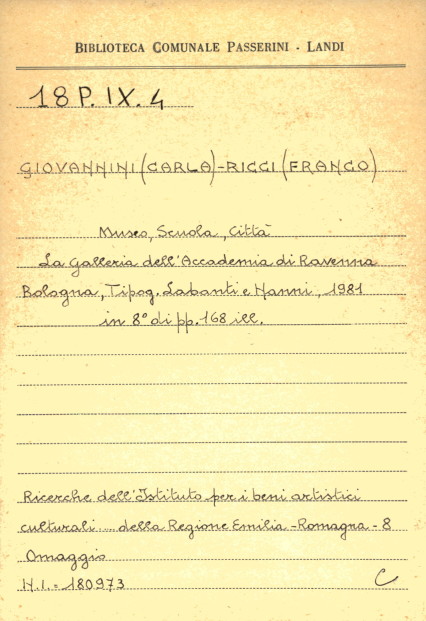 BIBLIOTECA COMUNALE PASSERINI - LANDI
18 P. IX. 4
GIOVANNINI (CARLA) - RICCI (FRANCO)
Museo, Scuola, Città
La Galleria dell'Accademia di Ravenna
Bologna, Tipog. Labanti e Nanni, 1981
in 8° di pp. 168 ill.
Ricerche dell'Istituto per i beni artistici
culturali .... della Regione Emilia - Romagna - 8
Omaggio
N.I. = 180973 C